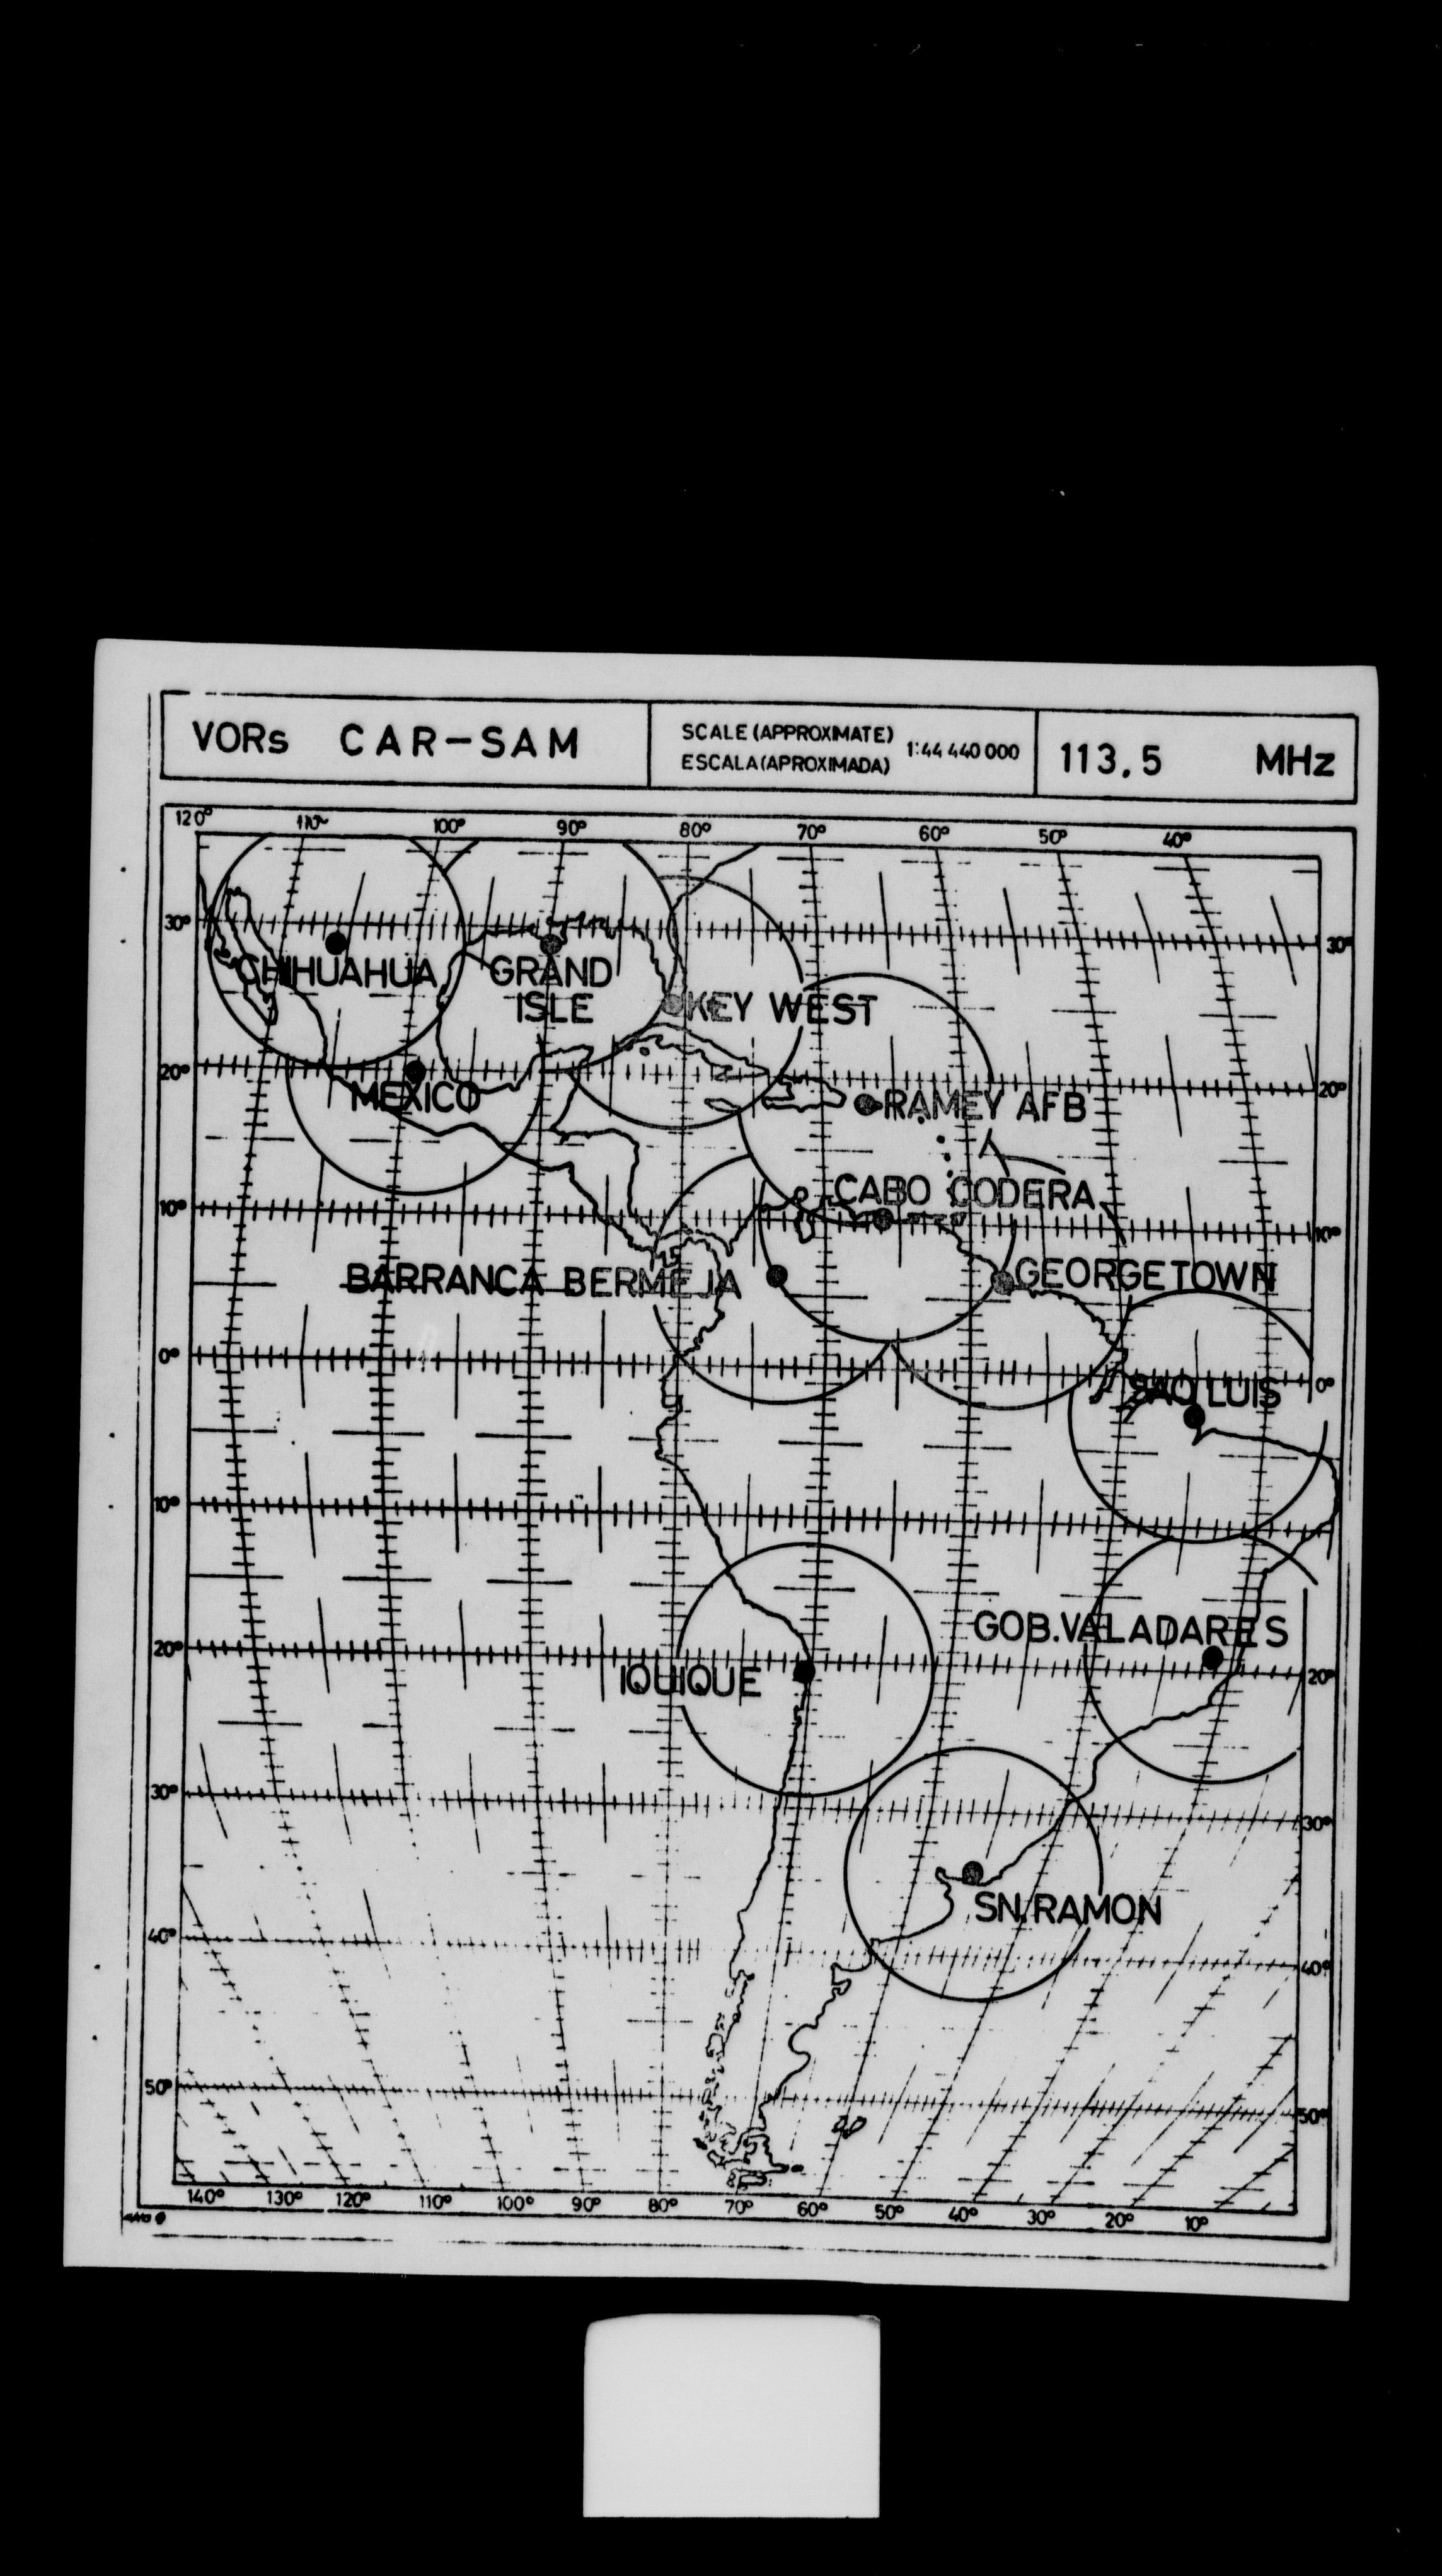 VORs CAR-SAM
SCALE (APPROXIMATE)
ESCALA (APROXIMADA)
1:44 440 000
113.5 MHz
120° 110° 100° 90° 80° 70° 60° 50° 40°
30° 30°
CHIHUAHUA
GRAND
ISLE
KEY WEST
20° 20°
MEXICO
RAMEY AFB
CABO CODERA
10° 10°
BARRANCA BERMEJA
GEORGETOWN
0° 0°
SAO LUIS
10°
GOB.VALADARES
20° 20°
IQUIQUE
30° 30°
SN.RAMON
40° 40°
50° 50°
140° 130° 120° 110° 100° 90° 80° 70° 60° 50° 40° 30° 20° 10°